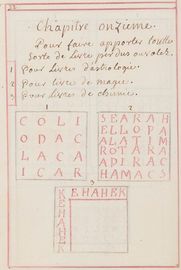 Chapitre onzieme.
Pour faire apporter toutte
Sorte de Livre perdus ou volez.
1 Pour Livres d'astrologie.
2 pour livre de magie.
3 pour livres de chimie.
1
COLI
ODAC
LACA
ICAR
2
SEARAH
ELLOPA
ALATIM
ROTARA
ADIRAC
HAMACS
3